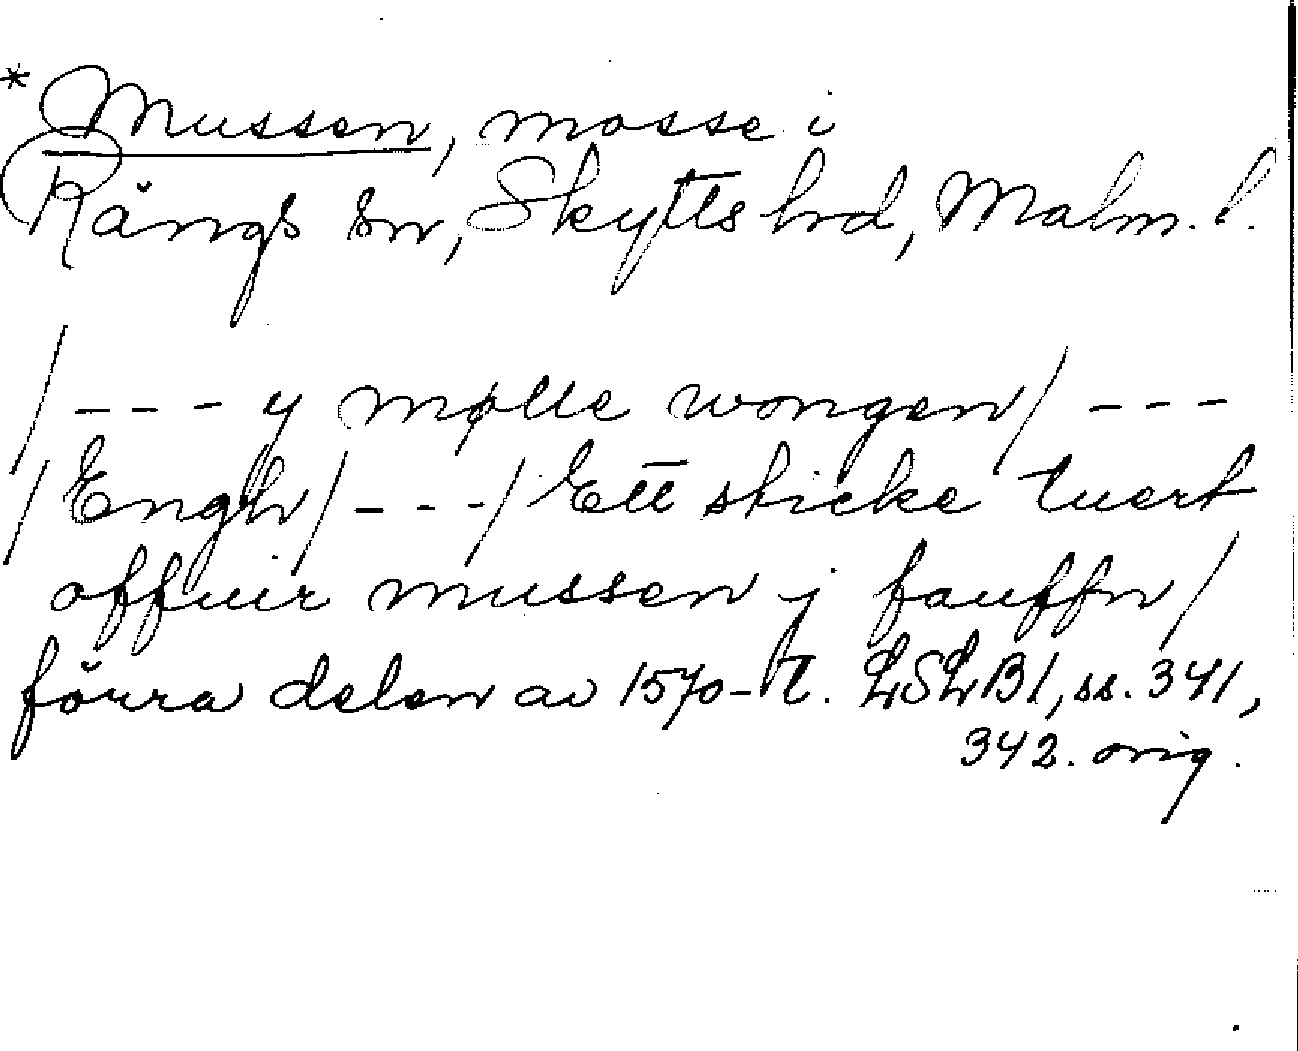 * Mussen, mosse i
Rängs sn, Skytts hrd, Malm. l.
/--- y mølle wongen/ ---
/Engh/---/ Ett sticke tuert
offuir mussen j fauffn/
förra delen av 1570-t. LSLB1, ss. 341,
342. orig.